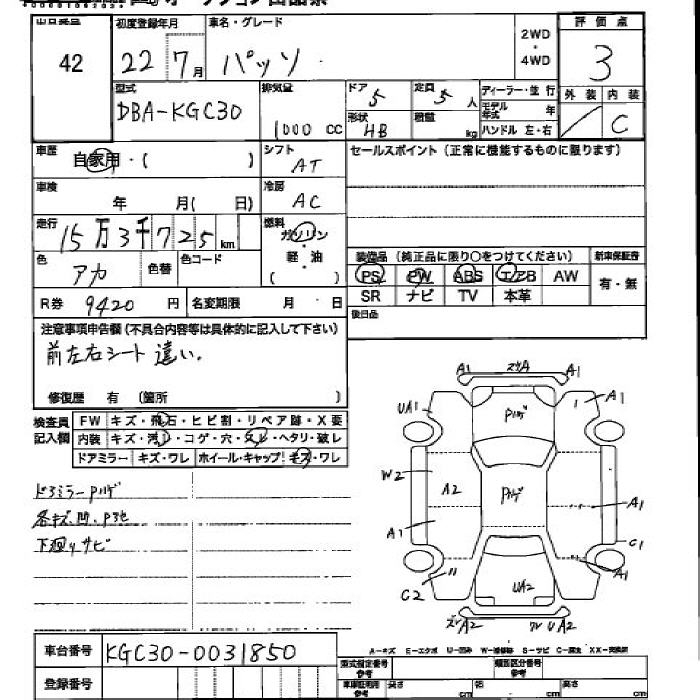 42
初度登録年月
22年7月
車名・グレード
パッソ
2WD
・
4WD
評価点
3
型式
DBA-KGC30
排気量
1000 cc
ドア
5
定員
5人
形状
HB
積載
kg
ディーラー・並行
モデル年式
年
ハンドル 左・右
外装
内装
C
車歴
自家用・(　)
シフト
AT
セールスポイント(正常に機能するものに限ります)
車検
年　月(　日)
冷房
AC
走行
15万3千725km
燃料
ガソリン
・
軽・油
(　)
色
アカ
色替
色コード
装備品(純正品に限り○をつけてください)
新車保証書
PS
PW
ABS
エアB
AW
有・無
SR
ナビ
TV
本革
R券
9420円
名変期限
月・日
後日品
注意事項申告欄(不具合内容等は具体的に記入して下さい)
前左右シート違い.
修復歴　有(箇所　)
検査員
記入欄
FW
キズ・飛石・ヒビ割・リペア跡・X要
内装
ドアミラー
キズ・ワレ
ホイール・キャップ
キズ・ワレ
ドアミラーPハゲ
各キズ.凹.P他
下廻りサビ
A1
A1
UA1
Pハゲ
A1
W2
A2
Pハゲ
A1
A1
C1
A1
C2
UA2
UA2
A-キズ E-エクボ U-凹み W-補修跡 S-サビ C-腐食 XX-交換済
車台番号
KGC30-0031850
登録番号
型式指定番号
参考
類別区分番号
参考
車庫証明用
参考
長さ
cm
幅
cm
高さ
cm